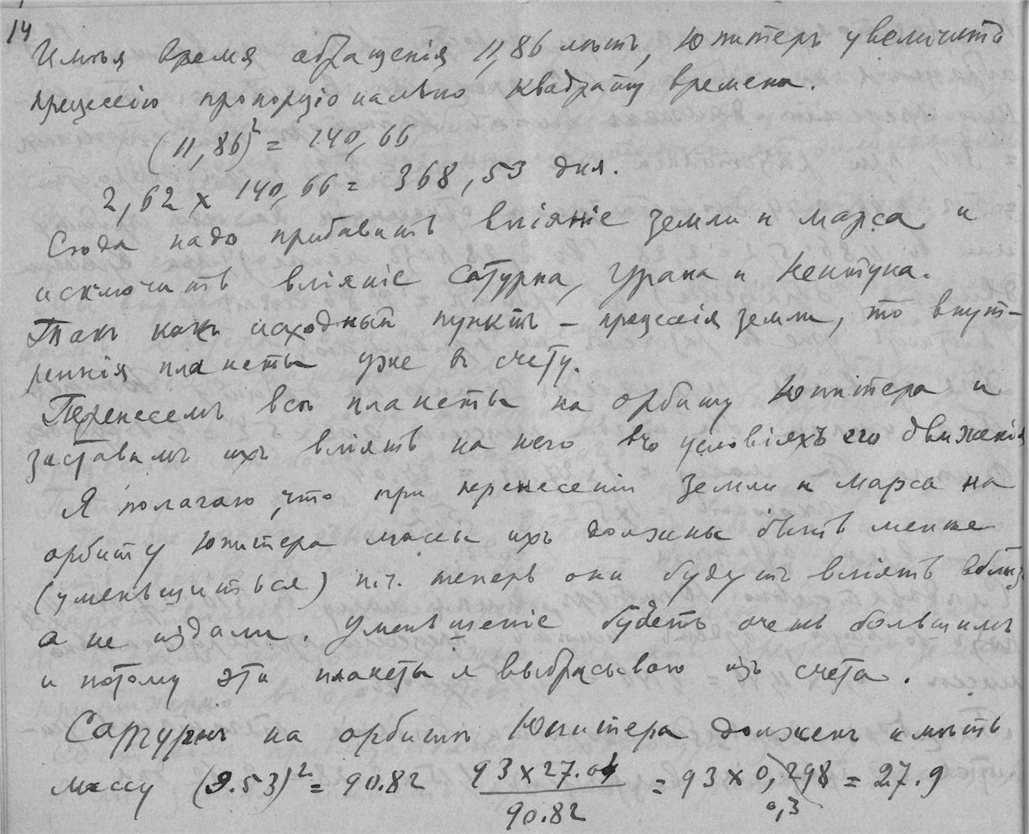 14
Имѣя время обращенія 11,86 лѣтъ, Юпитеръ увеличитъ
прецессію пропорціонально квадрату времени.
(11,86)² = 140,66
2,62 x 140,66 = 368,53 дня.
Сюда надо прибавить вліяніе земли и марса и
исключить вліяніе Сатурна, Урана и Нептуна.
Такъ какъ исходный пунктъ – прецессія земли, то внут-
реннія планеты уже в счету.
Перенесемъ всѣ планеты на орбиту Юпитера и
заставимъ ихъ вліять на него въ условіяхъ его движенія
Я полагаю, что при перенесеніи земли и марса на
орбиту Юпитера массы ихъ должны быть менше
(уменьшиться) п.ч. теперь они будутъ вліять вблизи
а не издали. Уменьшеніе будетъ очень большимъ
и потому эти планеты я выбрасываю изъ счета.
Сатурнъ на орбитѣ Юпитера долженъ имѣть
массу (9.53)² = 90.82 93 x 27.04 / 90.82 = 93 x 0,298 = 27.9
0,3